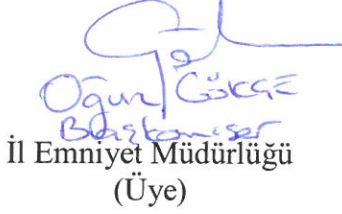 Oğuz GÖKÇE
Başkomiser
İl Emniyet Müdürlüğü
(Üye)